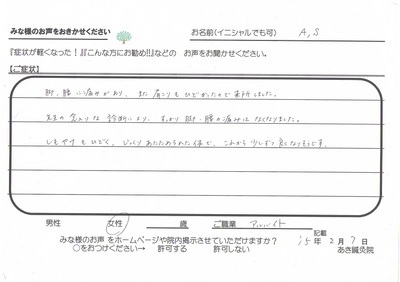 みな様のお声をおきかせください
お名前(イニシャルでも可) A,S
『症状が軽くなった！』『こんな方にお勧め!!』などの お声をお聞かせください。
【ご症状】
脚・腰に痛みがあり、また肩こりもひどかったので来所しました。
先生の的確な診断により、すっかり脚・腰の痛みはなくなりました。
しもやけもひどく、じっくりあたためられた体で、これから少しずつ良くなりそうです。
男性 女性 歳 ご職業 アルバイト
記載
みな様のお声をホームページや院内掲示させていただけますか？ 15年 2月 7日
○をおつけください→ 許可する 許可しない あき鍼灸院